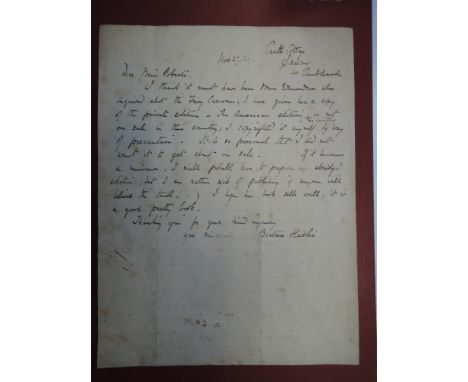 Castle Cottage
Nov 27. 29. Sawrey
Ambleside
Dear Miss Roberts,
I think it must have been Miss Edmondson who
inquired about the Fairy Caravan; I have given her a copy
of the private edition - The American edition is not
on sale in this country; I copyrighted it myself by way
of precaution. It is so personal that I did not
want it to get about on sale. If it becomes
a nuisance, I shall probably have to prepare an abridged
edition; but I am rather sick of publishing if anyone will
believe the truth! I hope her book sells well; it is
a good pretty book.
Thanking you for your kind inquiry
yrs sincerely Beatrix Heelis